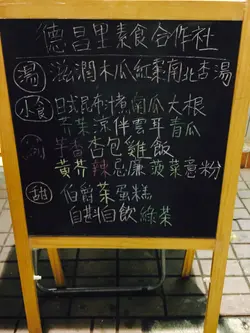 德昌里素食合作社
湯 滋潤木瓜紅棗南北杏湯
小食 日式昆布煮南瓜大根
芥菜涼伴雲耳青瓜
包雞飯
黃芥辣忌廉菠菜意粉
甜 伯爵茶蛋糕
自斟自飲綠茶